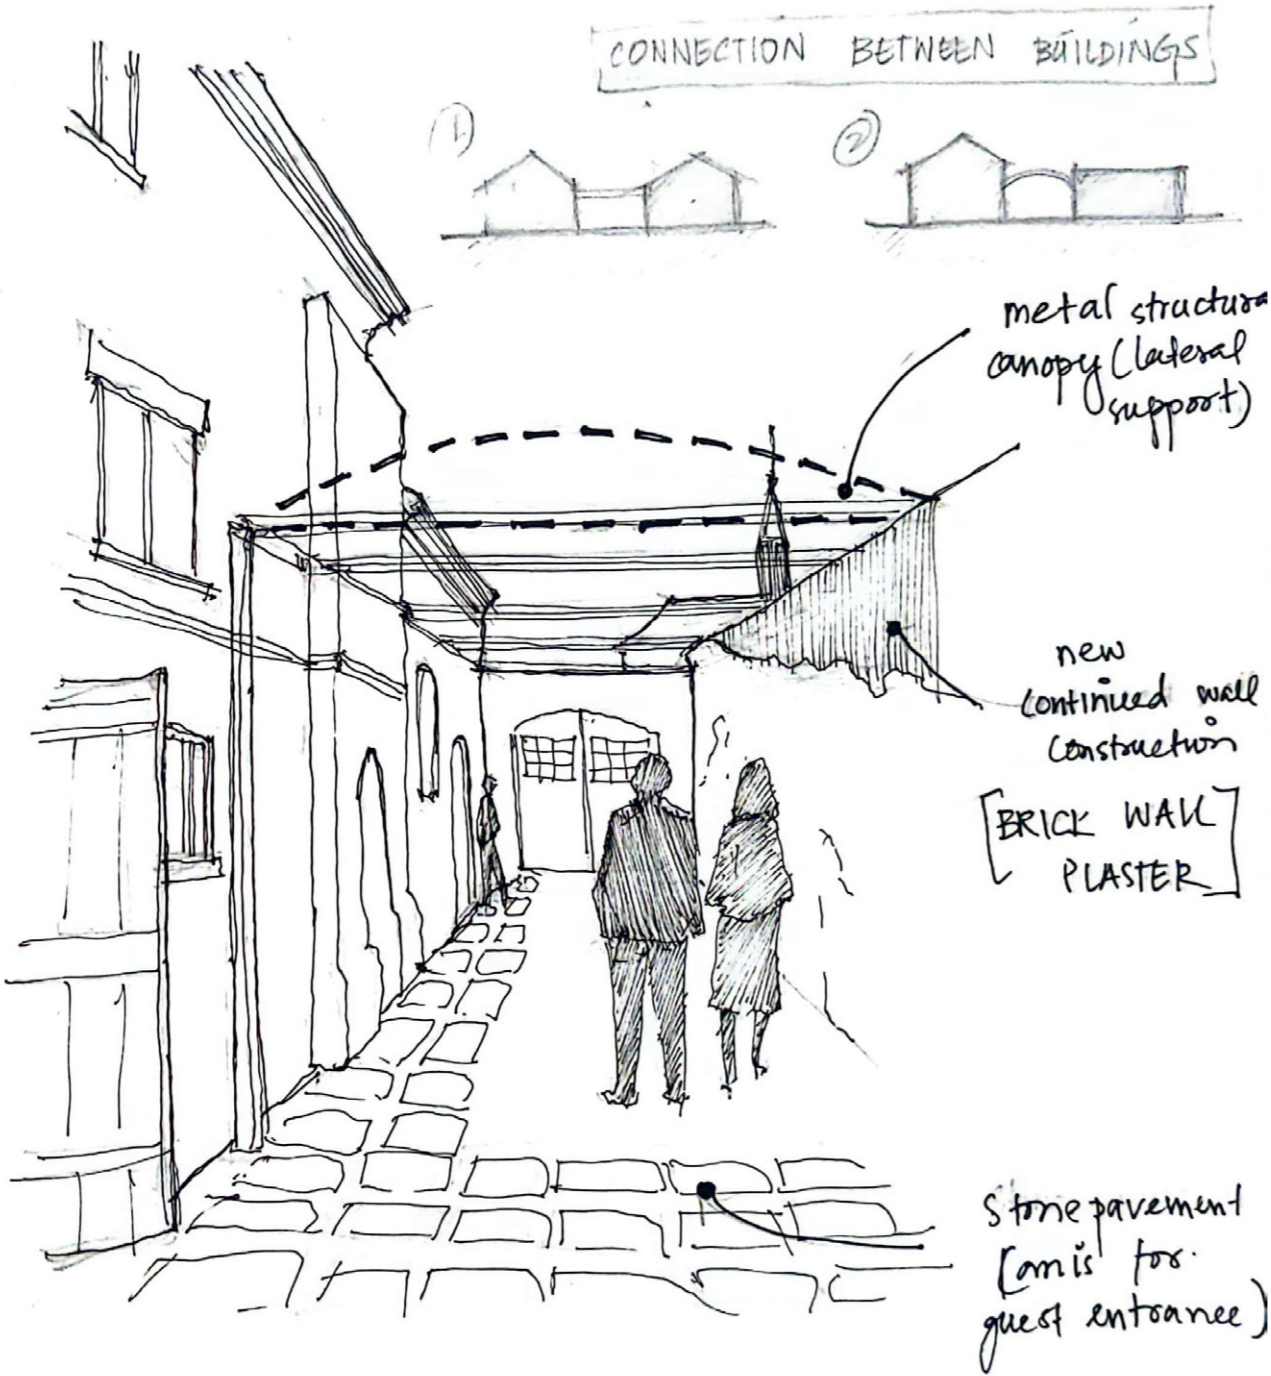 CONNECTION BETWEEN BUILDINGS
1
2
metal structura
canopy (lateral
support)
new
continued wall
construction
[BRICK WALL
PLASTER]
stone pavement
for
guest entrance)